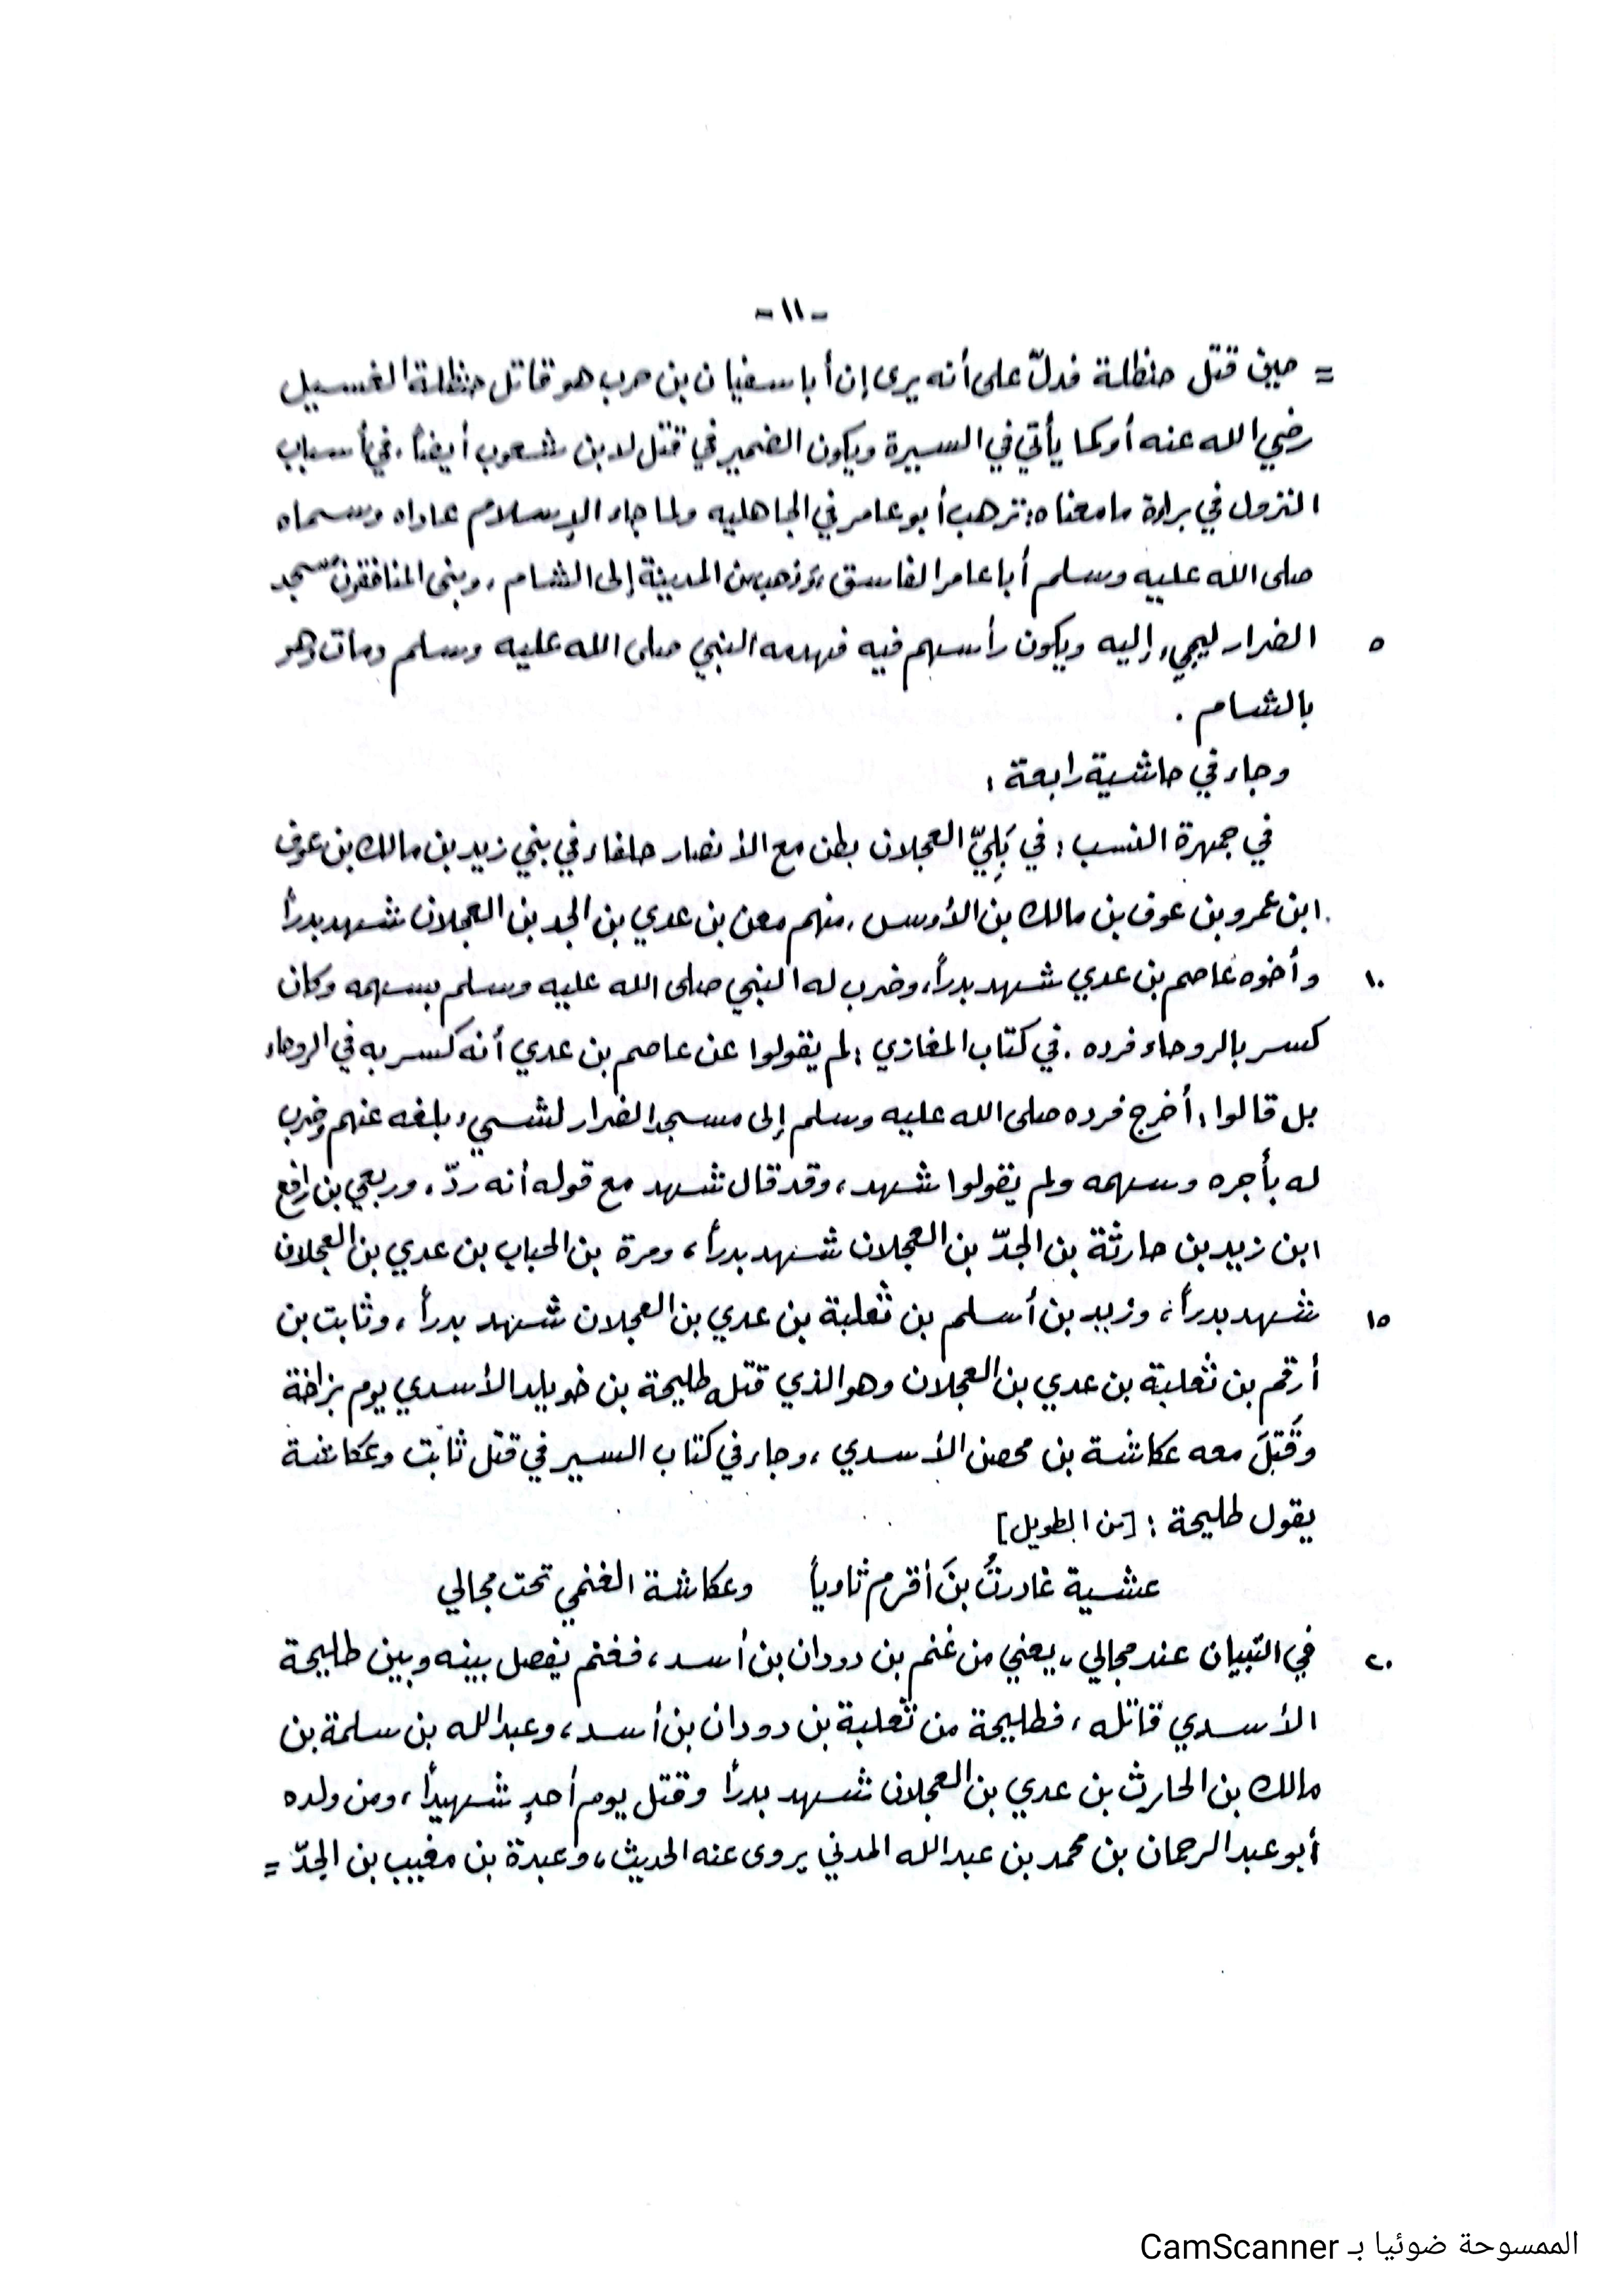 -١١-
= حين قتل حنظلة فدلّ على أنه يرى إن أبا سفيان بن حرب هو قاتل حنظلة الغسيل
رضي الله عنه أو كما يأتي في السيرة ويكون الضمير في قتل لابن شعوب أيضاً . في أسباب
النزول في براءة ما معناه : ترهب أبو عامر في الجاهليه ولما جاء الإسلام عاداه وسماه
صلى الله عليه وسلم أبا عامر الفاسق ، وذهب من المدينة إلى الشام ، وبنى المنافقون مسجد
٥ الضرار ليجيء إليه ويكون رأسهم فيه فهدمه النبي صلى الله عليه وسلم ومات وهو
بالشام .
وجاء في حاشية رابعة :
في جمهرة النسب : في بَلِيّ العجلان بطن مع الأنصار حلفاء في بني زيد بن مالك بن عوف
ابن عمرو بن عوف بن مالك بن الأوس ، منهم معن بن عدي بن الجد بن العجلان شهد بدراً
١٠ وأخوه عاصم بن عدي شهد بدراً ، وضرب له النبي صلى الله عليه وسلم بسهمه وكان
كسر بالروحاء فرده . في كتاب المغازي : لم يقولوا عن عاصم بن عدي أنه كسر به في الروحاء
بل قالوا : أخرج فرده صلى الله عليه وسلم إلى مسجد الضرار لشيء بلغه عنهم وضرب
له بأجره وسهمه ولم يقولوا شهد ، وقد قال شهد مع قوله أنه ردّ ، وربعي بن رافع
ابن زيد بن حارثة بن الجدّ بن العجلان شهد بدراً ، ومرة بن الحباب بن عدي بن العجلان
١٥ شهد بدراً ، وزيد بن أسلم بن ثعلبة بن عدي بن العجلان شهد بدراً ، وثابت بن
أرقم بن ثعلبة بن عدي بن العجلان وهو الذي قتله طليحة بن خويلد الأسدي يوم بزاخة
وقَتلَ معه عكاشة بن محصن الأسدي ، وجاء في كتاب السير في قتل ثابت وعكاشة
يقول طليحة : [من الطويل]
عشية غادرتُ بنَ أقرم ثاوياً وعكاشة الغنمي تحت مجالي
٢٠ في التبيان عند مجالي ، يعني من غنم بن دودان بن أسد ، فغنم يفصل بينه وبين طليحة
الأسدي قاتله ، فطليحة من ثعلبة بن دودان بن أسد ، وعبد الله بن سلمة بن
مالك بن الحارث بن عدي بن العجلان شهد بدراً وقتل يوم أحدٍ شهيداً ، ومن ولده
أبو عبد الرحمان بن محمد بن عبد الله المدني يروى عنه الحديث ، وعبدة بن مغيب بن الجدّ =
الممسوحة ضوئيا بـ CamScanner